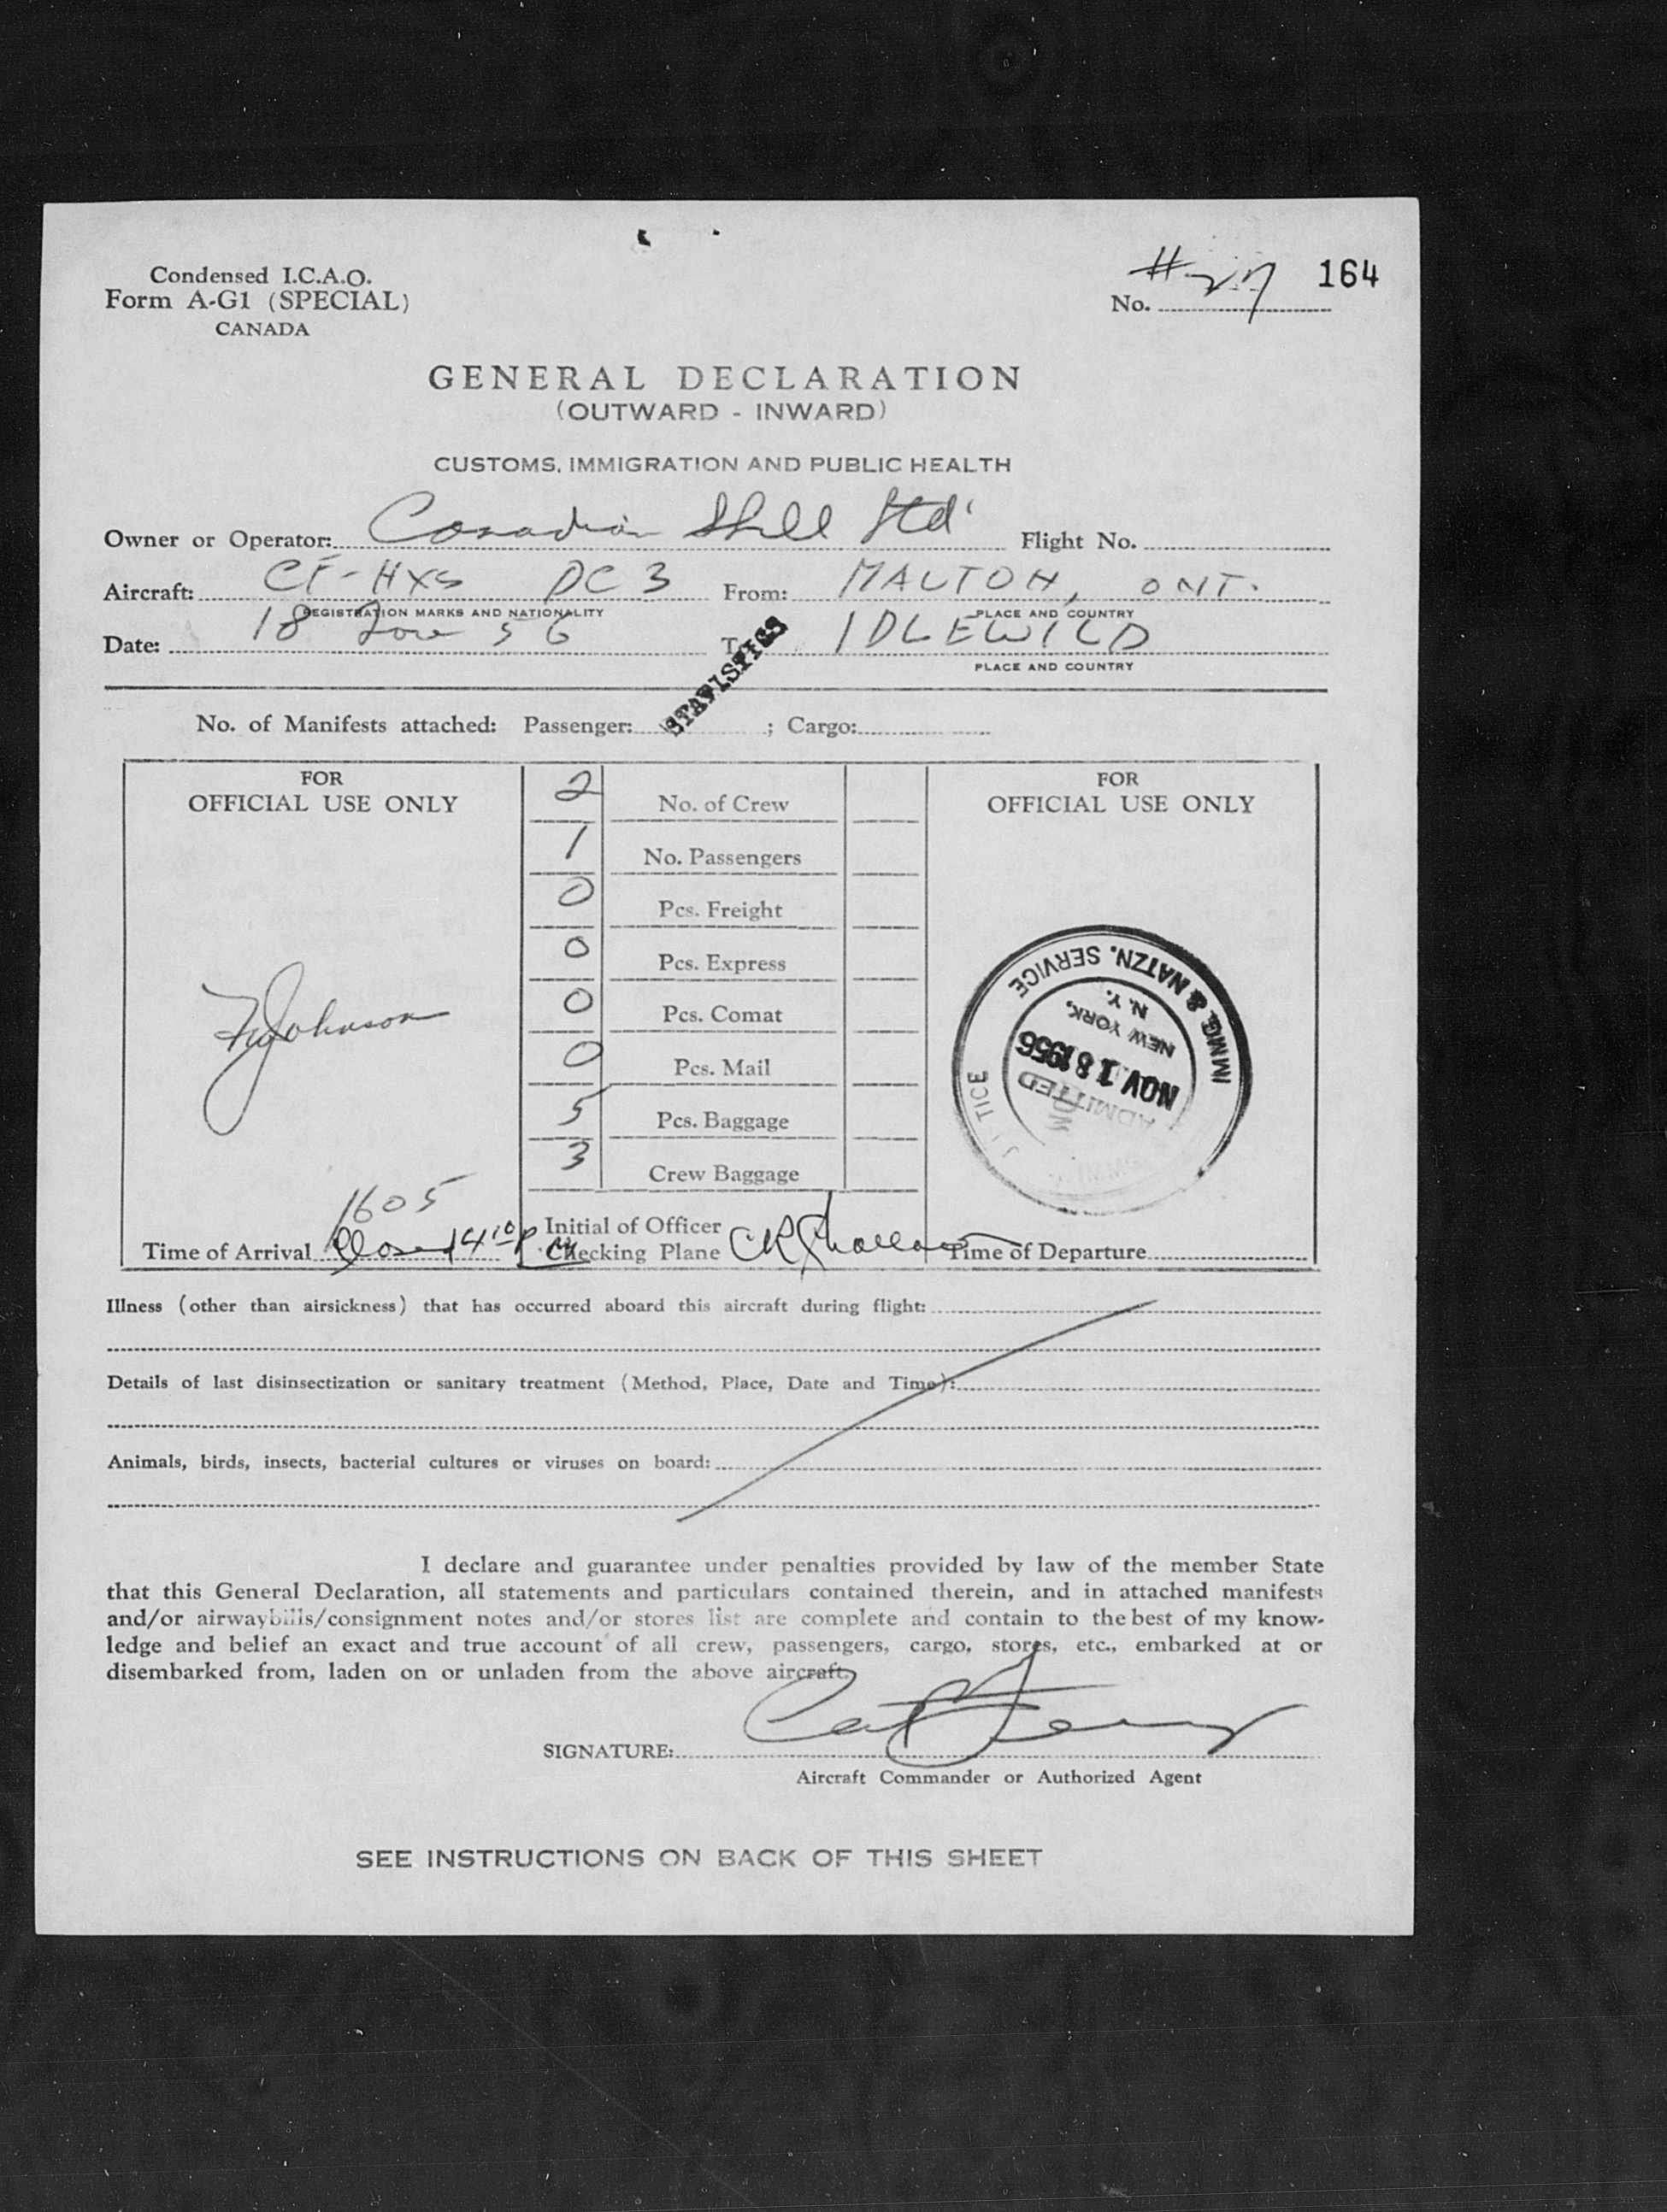 Condensed I.C.A.O.
Form A-G1 (SPECIAL)
CANADA
164
No. #27
GENERAL DECLARATION
(OUTWARD - INWARD)
CUSTOMS, IMMIGRATION AND PUBLIC HEALTH
Owner or Operator: Canadian Shell Ltd. Flight No.
Aircraft: CF-HXS DC3 From: MALTON, ONT.
REGISTRATION MARKS AND NATIONALITY PLACE AND COUNTRY
Date: 18 Nov 56 To: IDLEWILD
PLACE AND COUNTRY
STATISTICS
No. of Manifests attached: Passenger: ; Cargo:
FOR
OFFICIAL USE ONLY
2 No. of Crew
1 No. Passengers
0 Pcs. Freight
0 Pcs. Express
0 Pcs. Comat
0 Pcs. Mail
5 Pcs. Baggage
3 Crew Baggage
FOR
OFFICIAL USE ONLY
Johnson
IMMIG. & NATZN. SERVICE
NEW YORK,
N. Y.
NOV 18 1956
ADMITTED
1605
Time of Arrival Closed 4:10 P.M.
Initial of Officer
Checking Plane
Time of Departure
Illness (other than airsickness) that has occurred aboard this aircraft during flight:
Details of last disinsectization or sanitary treatment (Method, Place, Date and Time):
Animals, birds, insects, bacterial cultures or viruses on board:
I declare and guarantee under penalties provided by law of the member State
that this General Declaration, all statements and particulars contained therein, and in attached manifests
and/or airwaybills/consignment notes and/or stores list are complete and contain to the best of my know-
ledge and belief an exact and true account of all crew, passengers, cargo, stores, etc., embarked at or
disembarked from, laden on or unladen from the above aircraft.
SIGNATURE:
Aircraft Commander or Authorized Agent
SEE INSTRUCTIONS ON BACK OF THIS SHEET